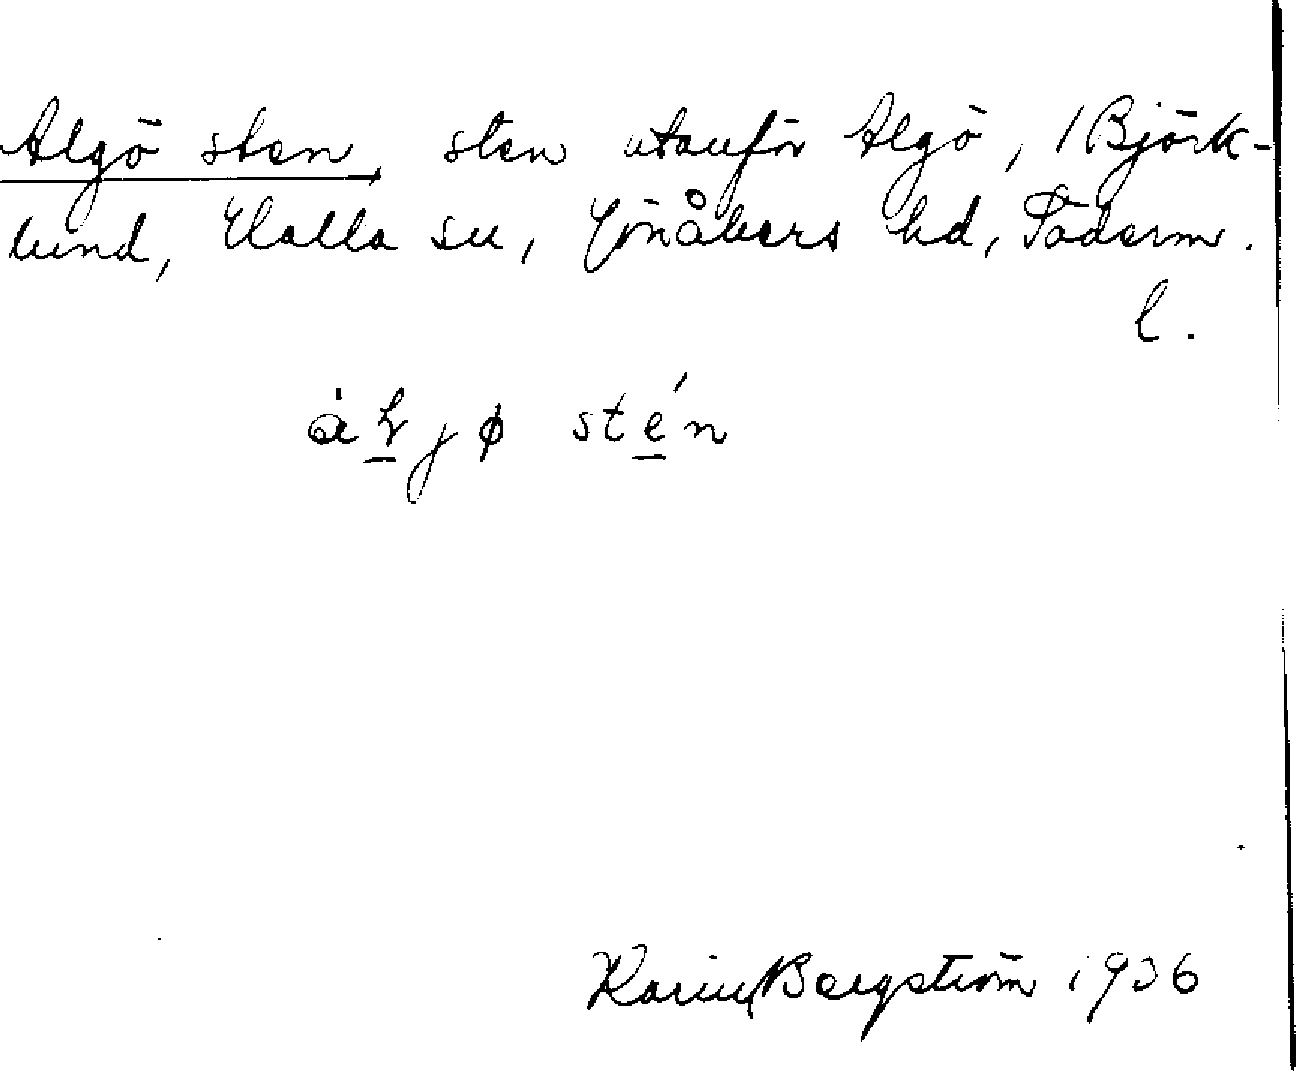 Algö sten, sten utanför Algö, Björk-
lund, Halla sn, Jönåkers hd, Söderm.
l.
stén
Karin Bergström 1936